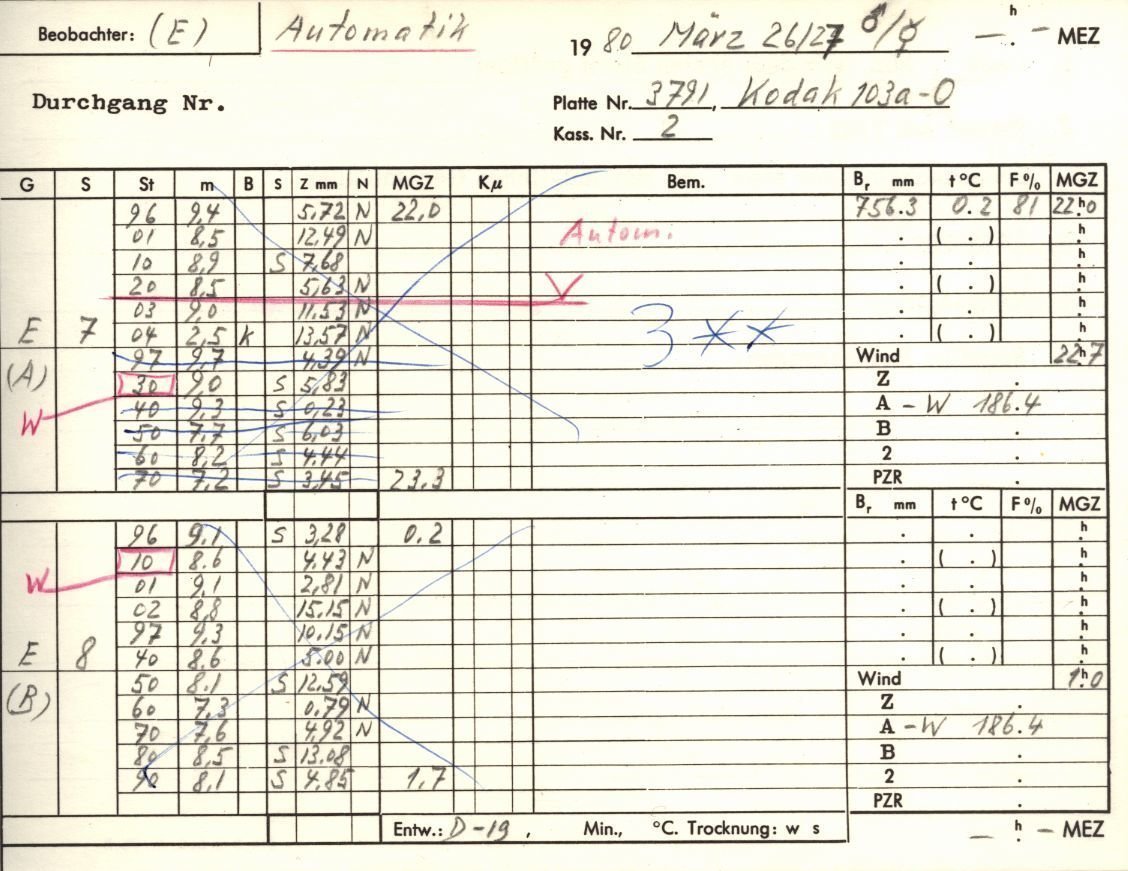 Beobachter: (E) Automatik 19 80 März 26/27 ♂/☿ — h . — MEZ
Durchgang Nr. Platte Nr. 3791, Kodak 103a-O
Kass. Nr. 2
G S St m B S Z mm N MGZ Kμ Bem. Br mm t °C F % MGZ
96 9,4 5,72 N 22,0 756.3 0.2 81 22h0
01 8,5 12,49 N Autom. . ( . ) h.
10 8,9 S 7,68 . . h.
20 8,5 5,63 N V . ( . ) h.
03 9,0 11,53 N . . h.
E 7 04 2,5 K 13,57 N 3 ** . ( . ) h.
(A) 97 9,7 4,39 N Wind 22h7
30 9,0 S 5,83 Z .
W 40 9,3 S 0,23 A - W 186.4
50 7,7 S 6,03 B .
60 8,2 S 4,44 2 .
70 7,2 S 3,45 23,3 PZR .
Br mm t °C F % MGZ
96 9.1 S 3,28 0.2 . . h.
10 8.6 4,43 N . ( . ) h.
W 01 9,1 2,81 N . . h.
02 8,8 15,15 N . ( . ) h.
97 9,3 10,15 N . . h.
E 8 40 8.6 5.00 N . ( . ) h.
(B) 50 8.1 S 12,59 Wind 1h0
60 7,3 0,79 N Z .
70 7,6 4,92 N A - W 186.4
80 8,5 S 13.08 B .
90 8,1 S 4,85 1,7 2 .
PZR .
Entw.: D-19 , Min., °C. Trocknung: w s — h . — MEZ